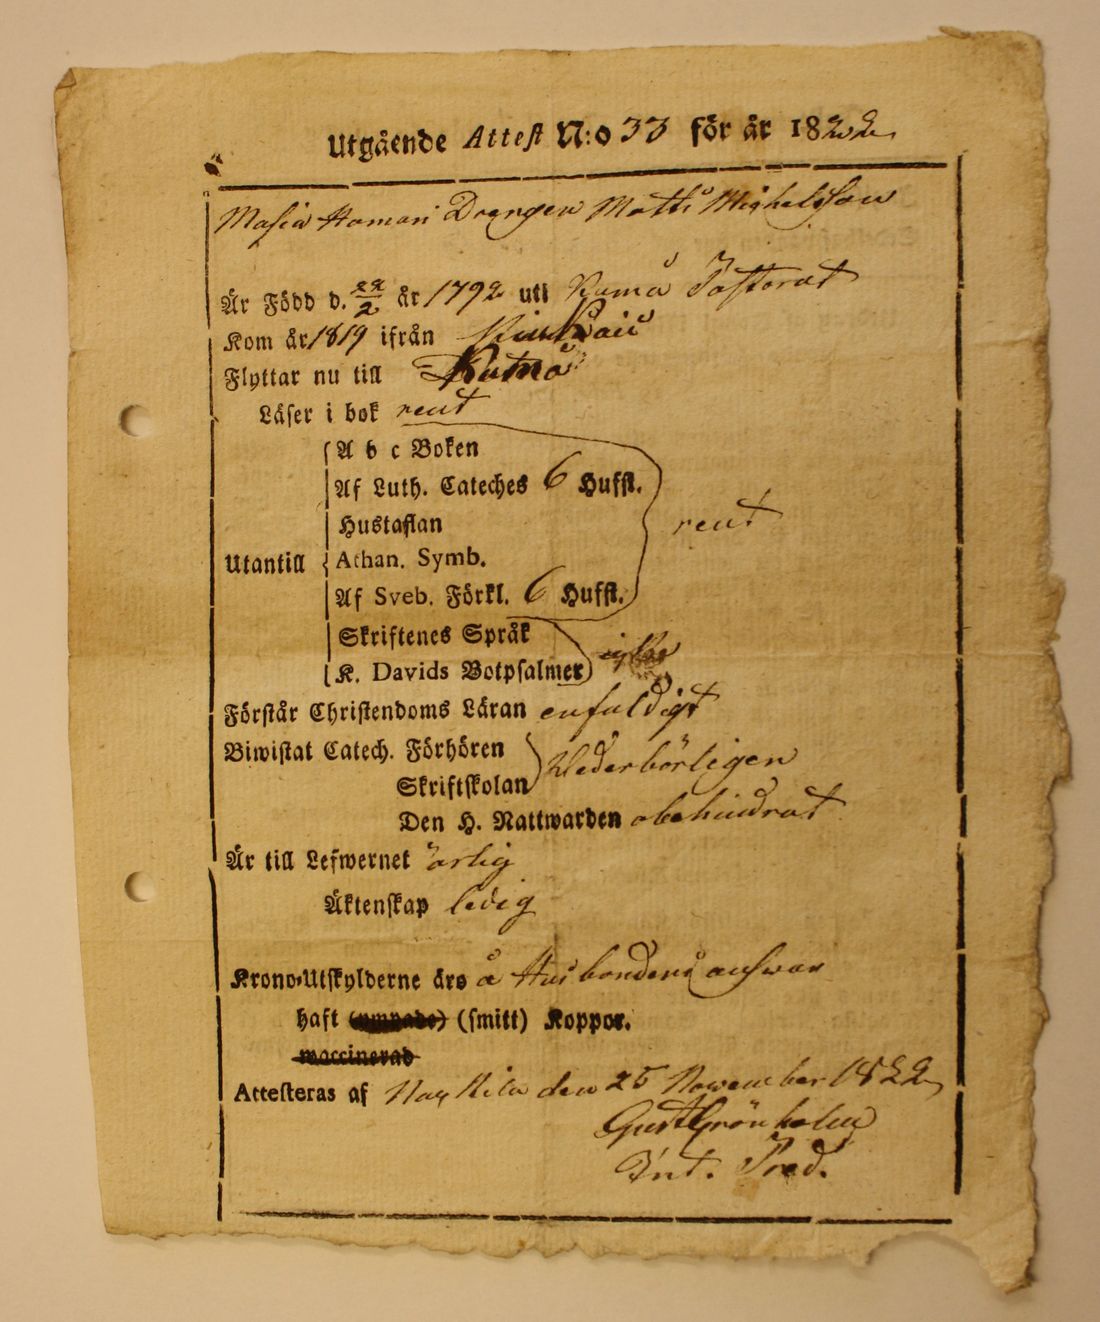 Utgående Attest N:o 33 för år 1822
Drengen Matts Michelsson
Är Född d. 22/2 år 1792 uti Kumå Pastorat
Kom år 1819 ifrån
Flyttar nu till Kumå
Läser i bok rent
A b c Boken
Af Luth. Cateches 6 Hufst.
Hustaflan
rent
Utantill
Athan. Symb.
Af Sveb. Förkl. 6 Hufst.
Skriftenes Språk
K. Davids Botpsalmer
Förstår Christendoms Läran enfaldigt
Biwistat Catech. Förhören
Wederbörligen
Skriftskolan
Den H. Nattwarden obehindrat
Är till Lefwernet ärlig
Äktenskap ledig
Krono-Utskylderne äro å Husbondens answar
haft (ympade) (smitt) Koppor.
waccinerad
Attesteras af Nackila den 25 November 1822
Gust Grönholm
Pred.